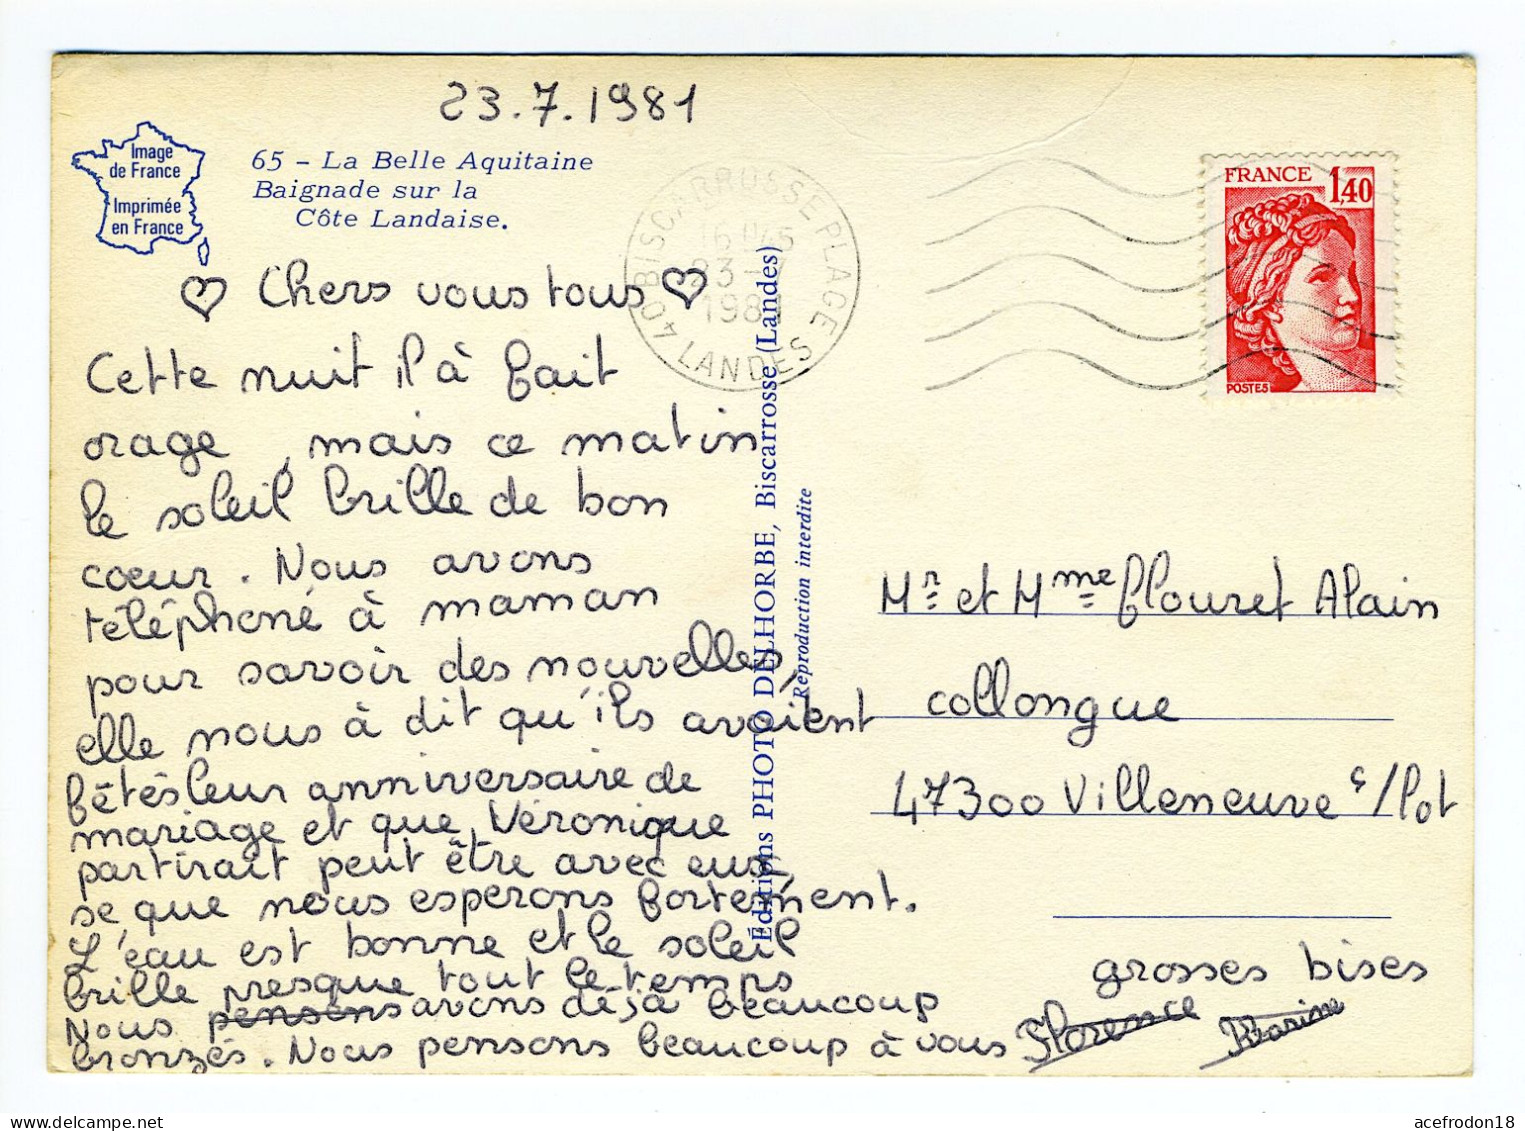 23.7.1981
Image
de France
Imprimée
en France
65 – La Belle Aquitaine
Baignade sur la
Côte Landaise.
♡ Chers vous tous ♡
Cette nuit il à fait
orage, mais ce matin
le soleil brille de bon
coeur. Nous avons
téléphoné à maman
pour savoir des nouvelles,
elle nous à dit qu'ils avaient
fêtés leur anniversaire de
mariage et que Véronique
partirait peut être avec eux,
se que nous esperons fortement.
L'eau est bonne et le soleil
brille presque tout le temps
Nous pensons avons déjà beaucoup
bronzés. Nous pensons beaucoup à vous
grosses bises
Florence Karine
40 BISCARROSSE PLAGE
16H45
23-7
1981
LANDES
Éditions PHOTO DELHORBE, Biscarrosse (Landes)
Reproduction interdite
FRANCE 1,40
POSTES
Mr et Mme flouret Alain
collongue
47300 Villeneuve s/lot
acefrodon18